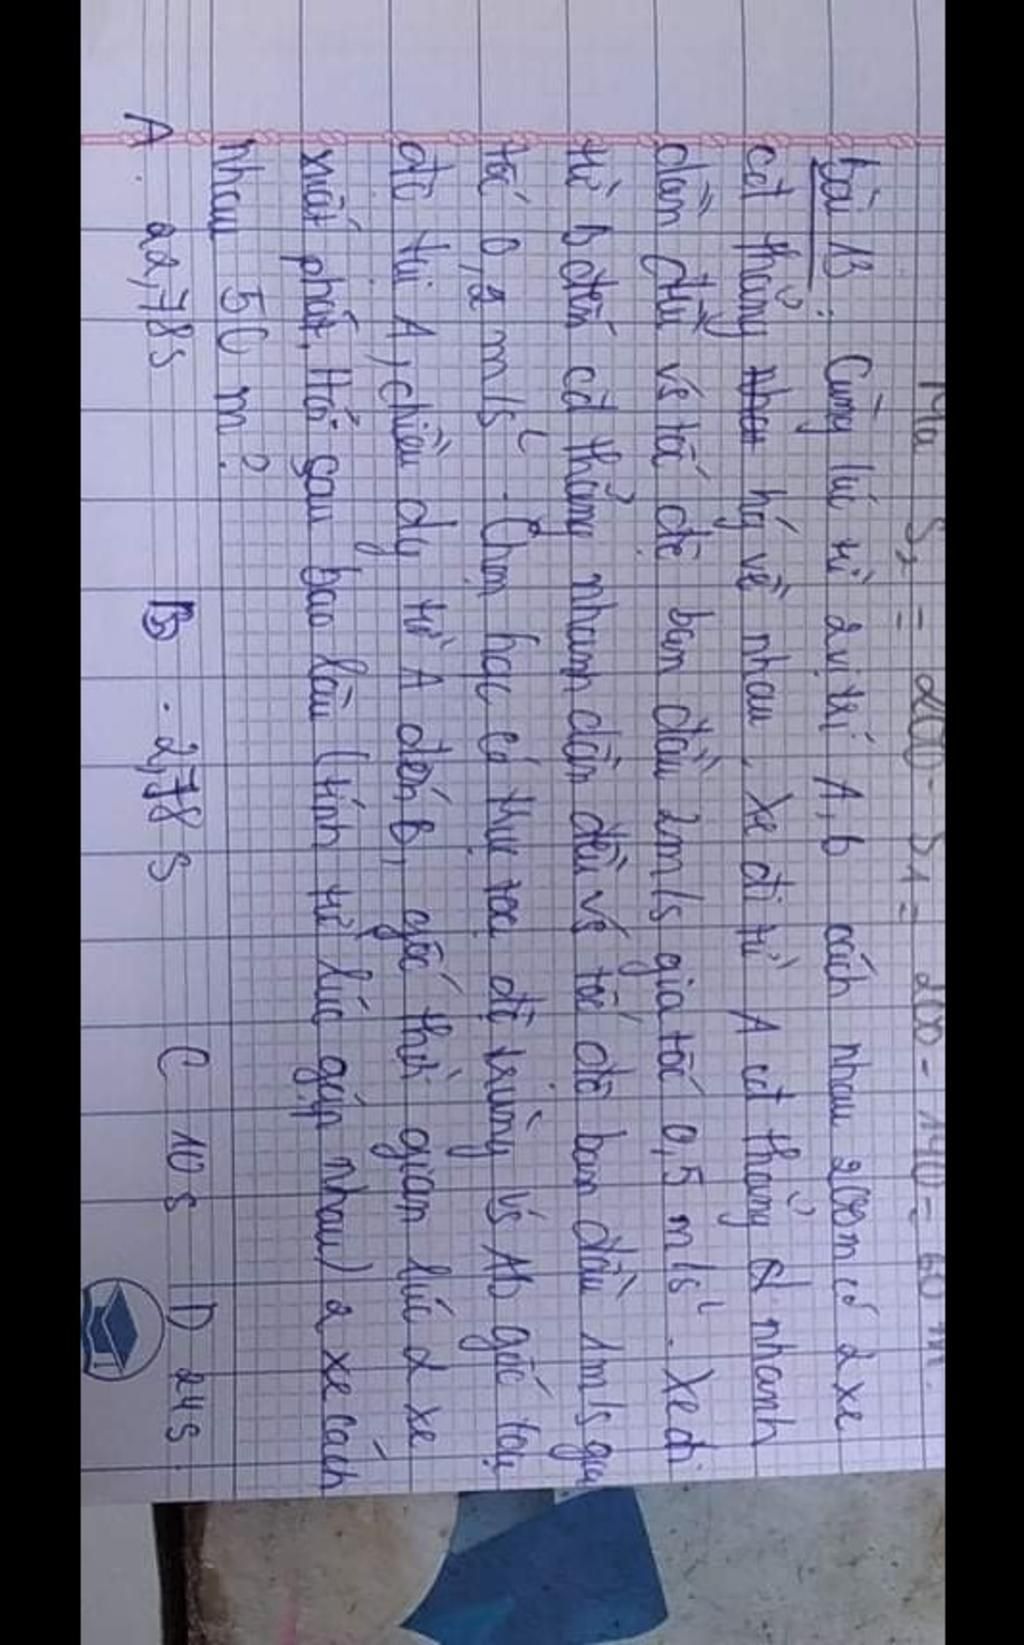 S₂ = 200 - S₁ = 200 - 140 = 60 m.
Bài 13: Cùng lúc từ 2 vị trí A, B cách nhau 200m có 2 xe
cđ thẳng hg về nhau, xe đi từ A cđ thẳng nhanh
dần đều vs tốc độ ban đầu 2m/s gia tốc 0,5 m/s². Xe đi
từ B đến cđ thẳng nhanh dần đều vs tốc độ ban đầu 1m/s gia
tốc 0,2 m/s². Chọn hqc có trục toạ độ trùng vs AB gốc toạ
độ tại A, chiều dg từ A đến B, gốc thời gian lúc 2 xe
xuất phát. Hỏi sau bao lâu (tính từ lúc gặp nhau) 2 xe cách
nhau 50 m?
A. 22,78s B. 2,78 s C 10s D 24s.